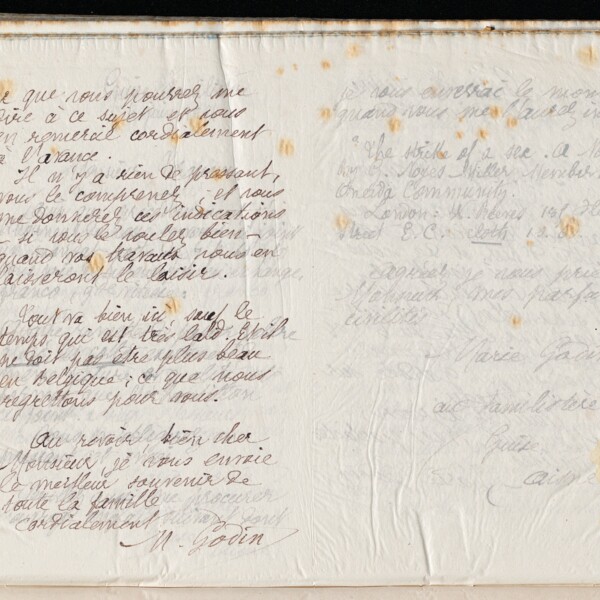 que vous pourrez me
dire à ce sujet et vous
en remercie cordialement
à l'avance.
Il n'y a rien de pressant,
vous le comprenez ; et vous
me donnerez ces indications
- si vous le voulez bien -
quand vos travaux vous en
laisseront le loisir.
Tout va bien ici sauf le
temps qui est très laid. Et il
ne doit pas être plus beau
en Belgique ; ce que nous
regrettons pour vous.
Au revoir bien cher
Monsieur je vous envoie
le meilleur souvenir de
toute la famille
cordialement
M. Godin
vous enverrai le
quand vous me l'aurez
"The strike of a sex. A
by Noyes Miller Member
Oneida Community
London:
E.C.
je vous prie
mes
Marie Godin
au Familistère
Guise
Aisne